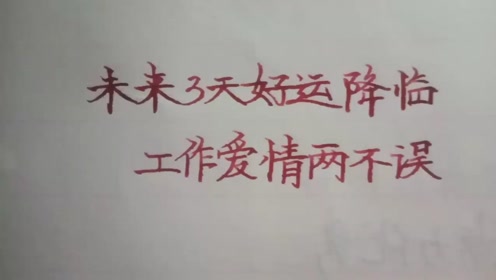 未来3天好运降临
工作爱情两不误